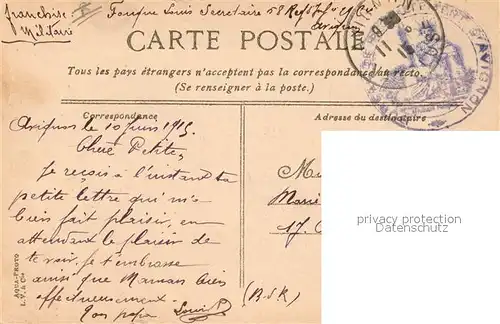 franchise Militaire
Fouque Louis Secrétaire 58e Regt
Avignon
AVIGNON
CARTE POSTALE
Tous les pays étrangers n'acceptent pas la correspondance au recto.
(Se renseigner à la poste.)
Correspondance
Adresse du destinataire
Avignon le 10 Juin 1915
Chère Petite,
Je reçois à l'instant ta
petite lettre qui m'a
bien fait plaisir, en
attendant le plaisir de
te voir, je t'embrasse
ainsi que Maman bien
affectueusement
Ton papa Louis
17.
(B-d-R)
AQUA-PHOTO
L. V. & Cie
privacy protection
Datenschutz